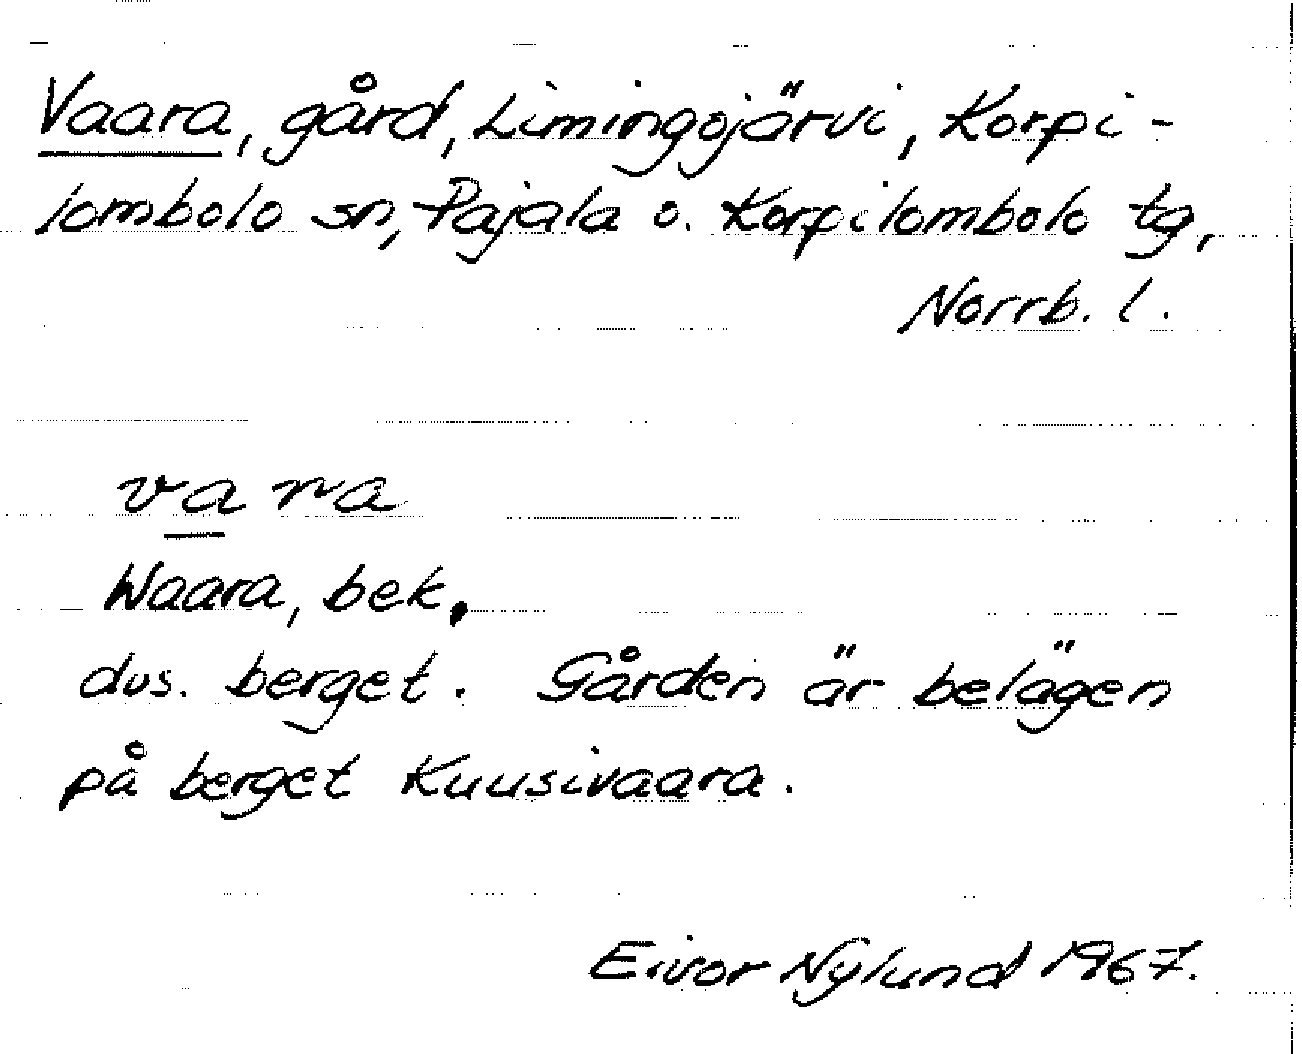 Vaara, gård, Limingojärvi, Korpi-
lombolo sn, Pajala o. Korpilombolo tg,
Norrb. l.
vara
Waara, bek.
dvs. berget. Gården är belägen
på berget Kuusivaara.
Eivor Nylund 1967.